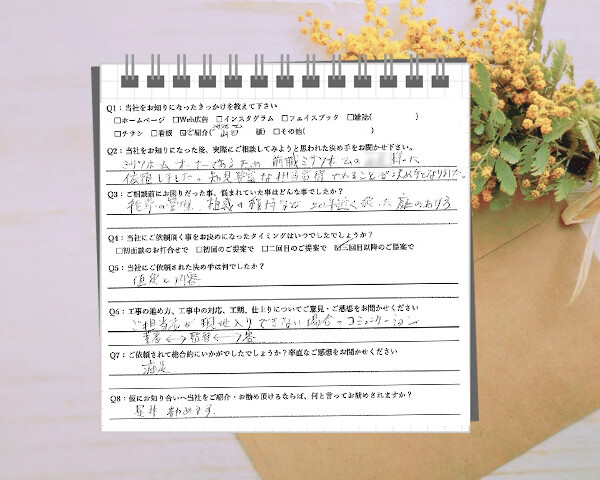 Q1：当社をお知りになったきっかけを教えて下さい
□ホームページ □Web広告 □インスタグラム □フェイスブック □雑誌( )
□チラシ □看板 ☑ご紹介( 前田 様) □その他( )
Q2：当社をお知りになった後、実際にご相談してみようと思われた決め手をお聞かせ下さい。
ミサワホームオーナーであるため 前職ミサワホームの 様に
依頼しました。知見豊富な担当者様であることが決め手となりました。
Q3：ご相談前にお困りだった事、悩まれていた事はどんな事でしたか？
雑草の管理、植栽の 20年近く経った庭のあり方
Q4：当社にご依頼頂く事をお決めになったタイミングはいつでしたでしょうか？
□初面談のお打合せで □初回のご提案で □二回目のご提案で ☑三回目以降のご提案で
Q5：当社にご依頼された決め手は何でしたか？
値段と内容
Q6：工事の進め方、工事中の対応、工期、仕上りについてご意見・ご感想をお聞かせください
ご担当者が現地入りできない場合のコミュニケーション
業者<->監督<->客
Q7：ご依頼されて総合的にいかがでしたでしょうか？率直なご感想をお聞かせください
満足
Q8：仮にお知り合いへ当社をご紹介・お勧め頂けるならば、何と言ってお勧めされますか？
是非 勧めます。